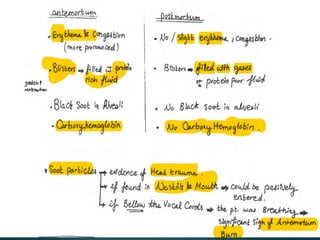 antemortem
postmortem
• Erythema & Congestion
(more pronounced)
• No / slight erythema, congestion.
• Blisters → filled c̄ protein
rich fluid
• Blisters → filled with gases
or protein poor fluid
• Black Soot in Alveoli
• No Black soot in alveoli
• Carboxyhemoglobin
• No Carboxy Hemoglobin.
• Soot particles → evidence of Heat trauma.
→ if found in Nostrils & Mouth → could be passively
entered.
→ if Bellow the Vocal Cords → the pt. was Breathing →
significant sign of Antemortum
Burn